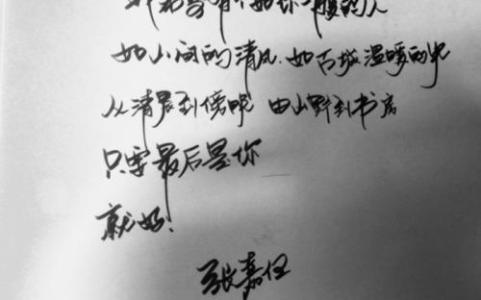 有个如你一般的人
如山间的清风 如古城温暖的光
从清晨到傍晚 由山野到书房
只要最后是你
就好!
张嘉佳